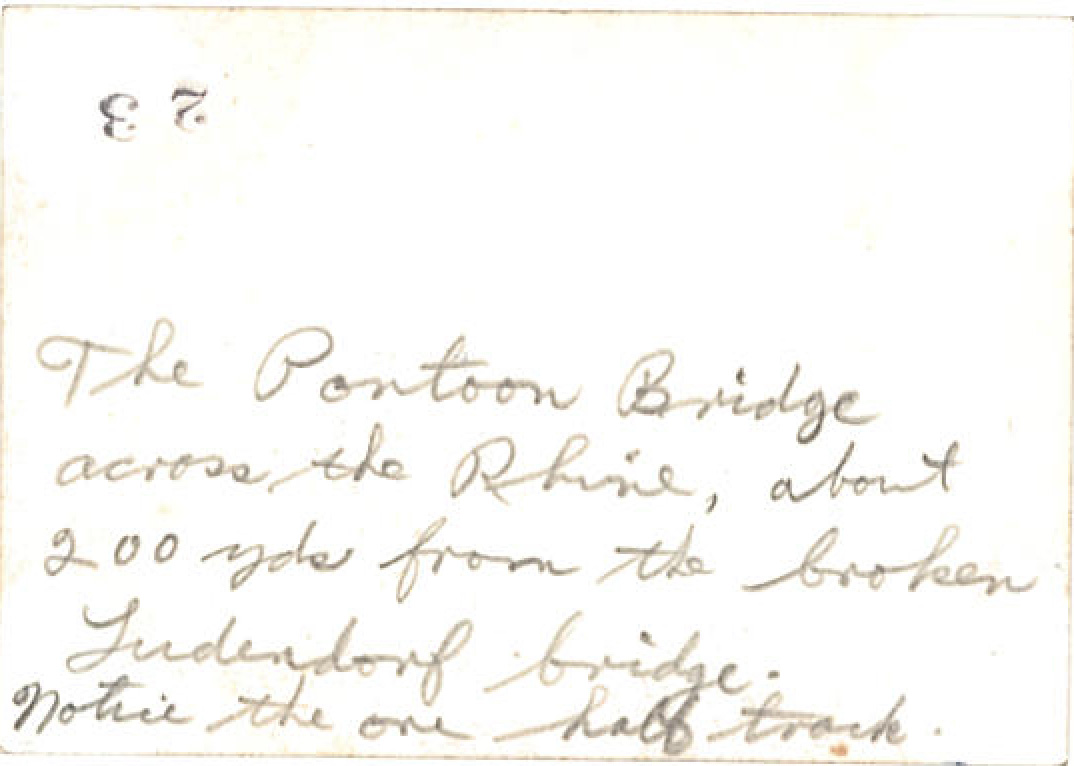 23
The Pontoon Bridge
across the Rhine, about
200 yds from the broken
Ludendorf bridge.
Notice the one half track.